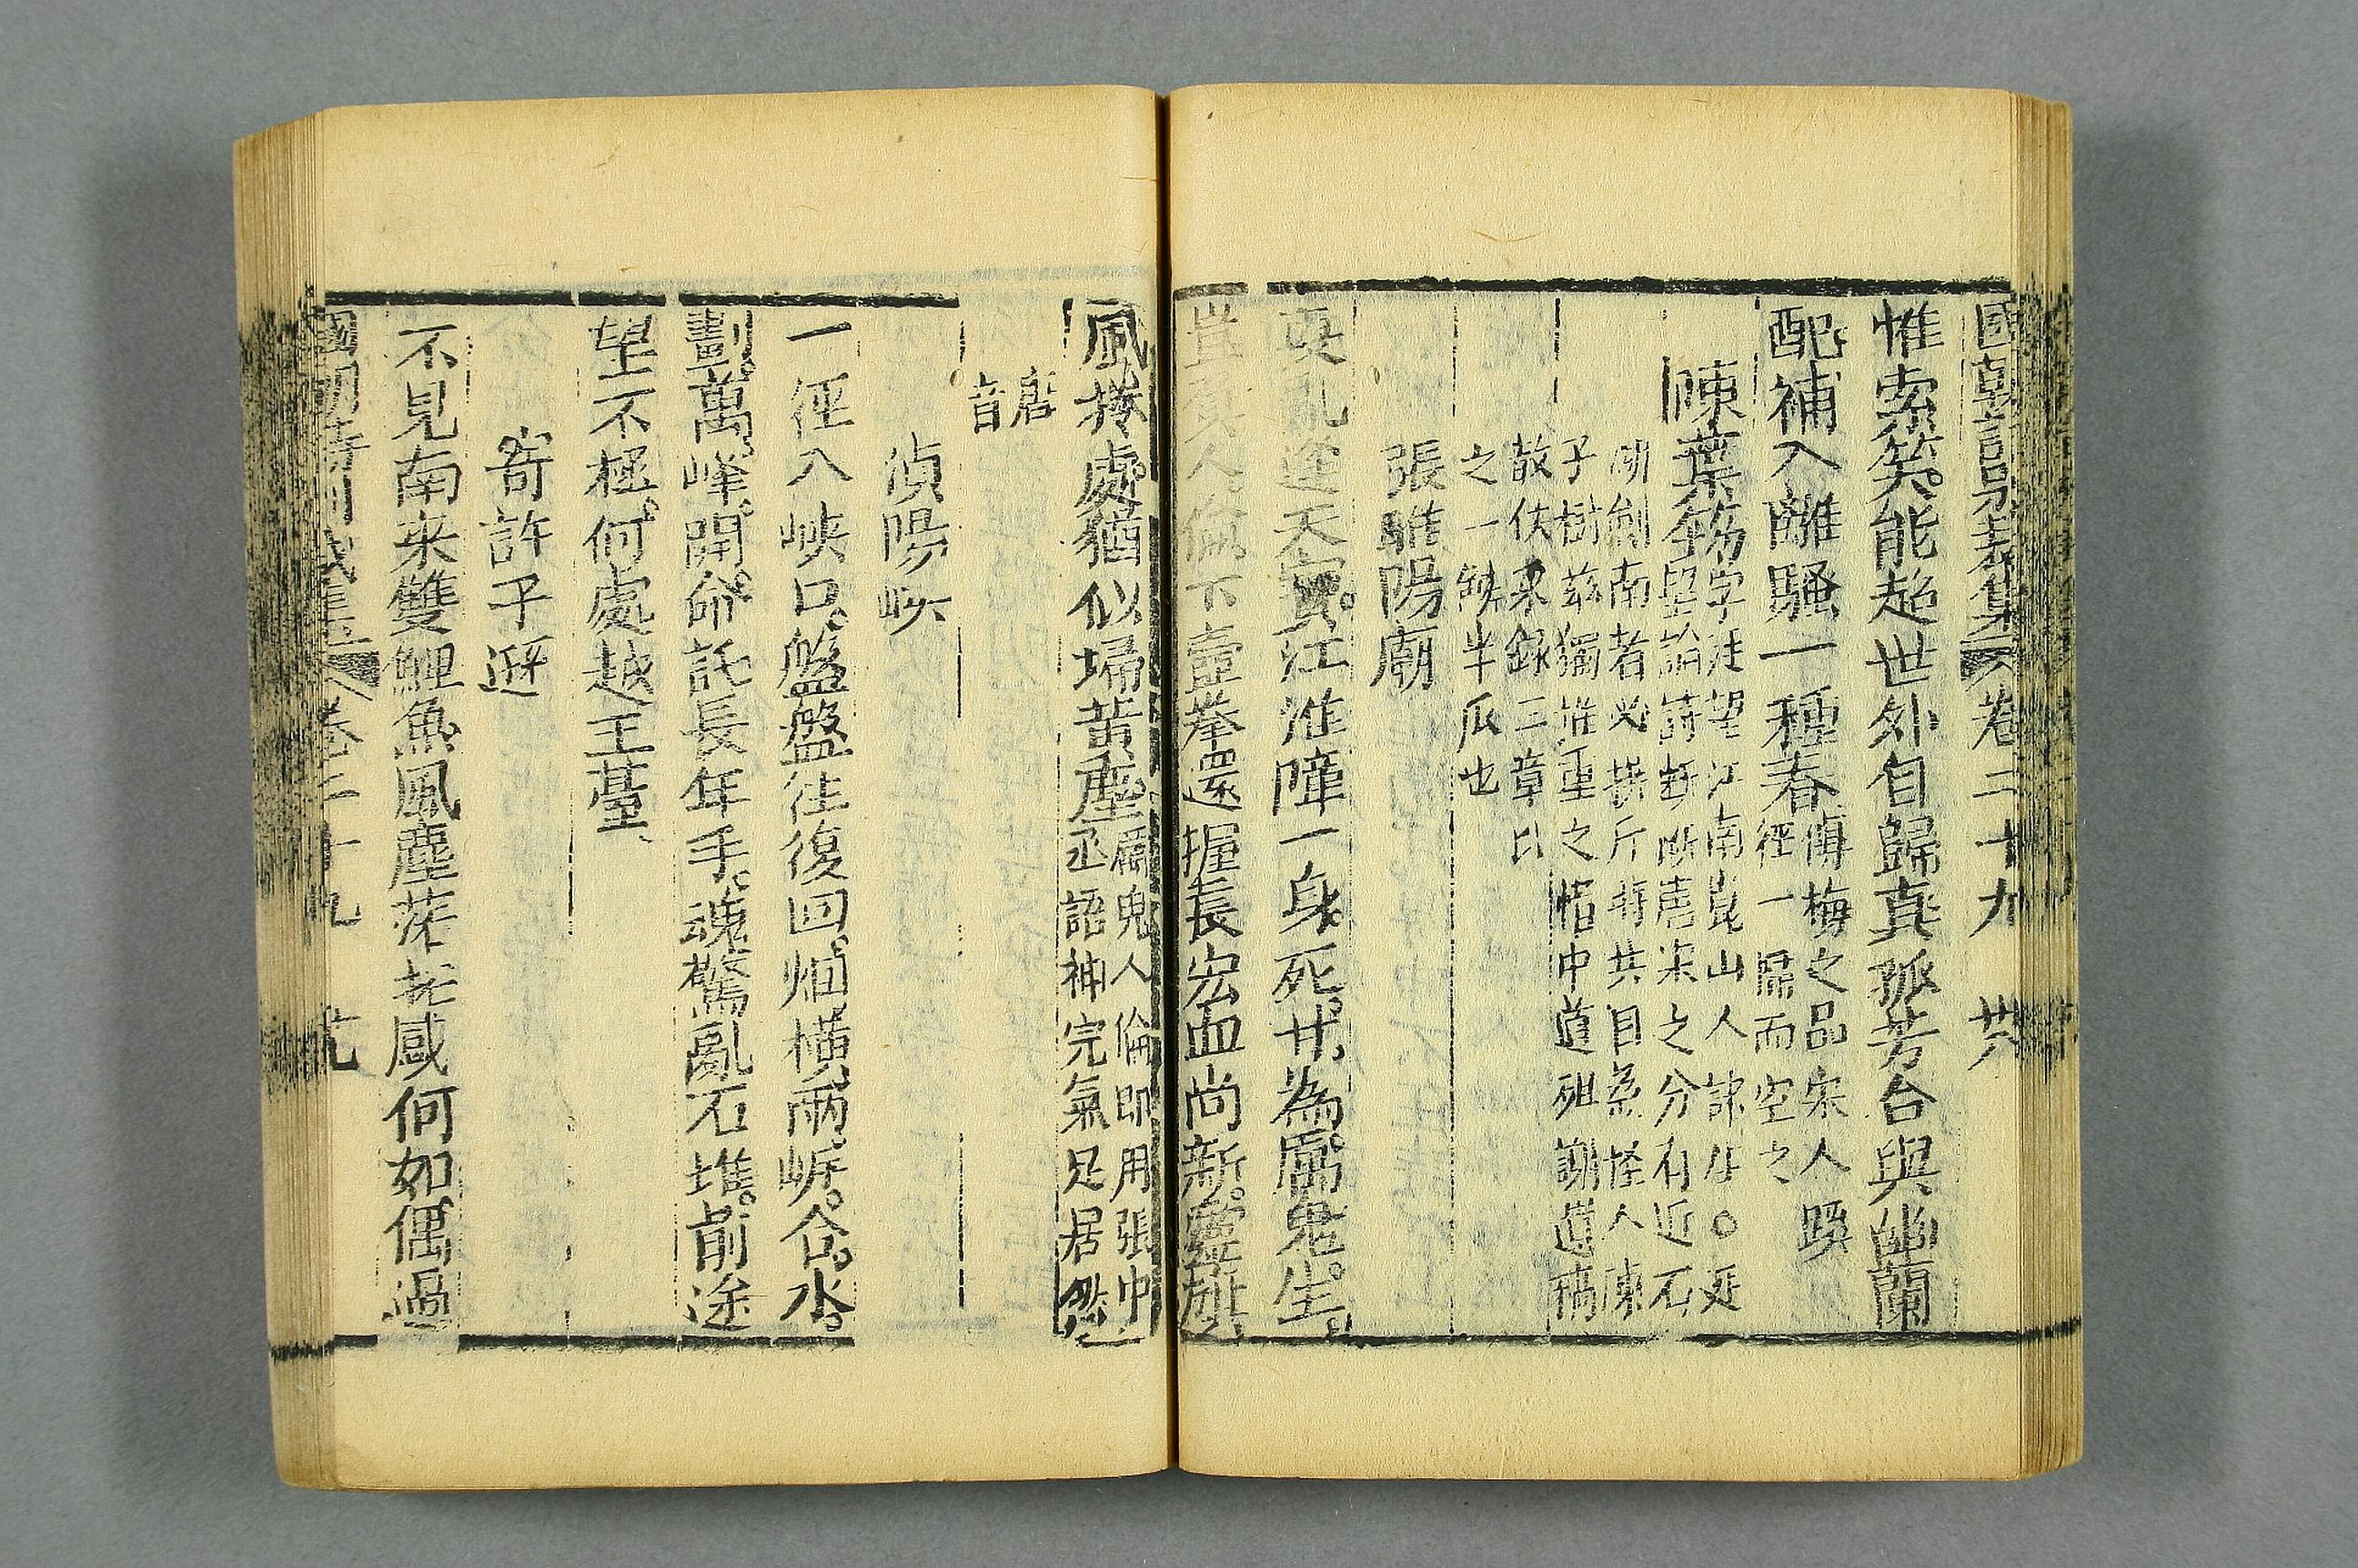 國朝詩別裁集 卷二十九 共
惟索笑能超世外自歸真孤芳合與幽蘭
配補入離騷一種春傳梅之品宋人蹊
徑一歸而空之
陳葉筠字涯望江南崑山人諸生〇延
堅論詩斷斷唐宋之分有近石
湖劍南者必排斥時共目為怪人陳
子樹茲獨推重之惜中道殂謝遺稿
散佚只錄三章比
之一臠半瓜也
張睢陽廟
喪亂逢天寶江淮障一身死甘為厲鬼生
豈食人倫下壹拳還握長宏血尚新靈旗
風捲處猶似埽黃塵厲鬼人倫即用張中
丞語神完氣足居然
唐
音
湞陽峽
一徑入峽口盤盤往復回烟橫兩崿合水
劃萬峰開命託長年手魂驚亂石堆前途
望不極何處越王臺
寄許子遜
不見南來雙鯉魚風塵茫茫感何如偶過
國朝詩別裁集 卷二十九